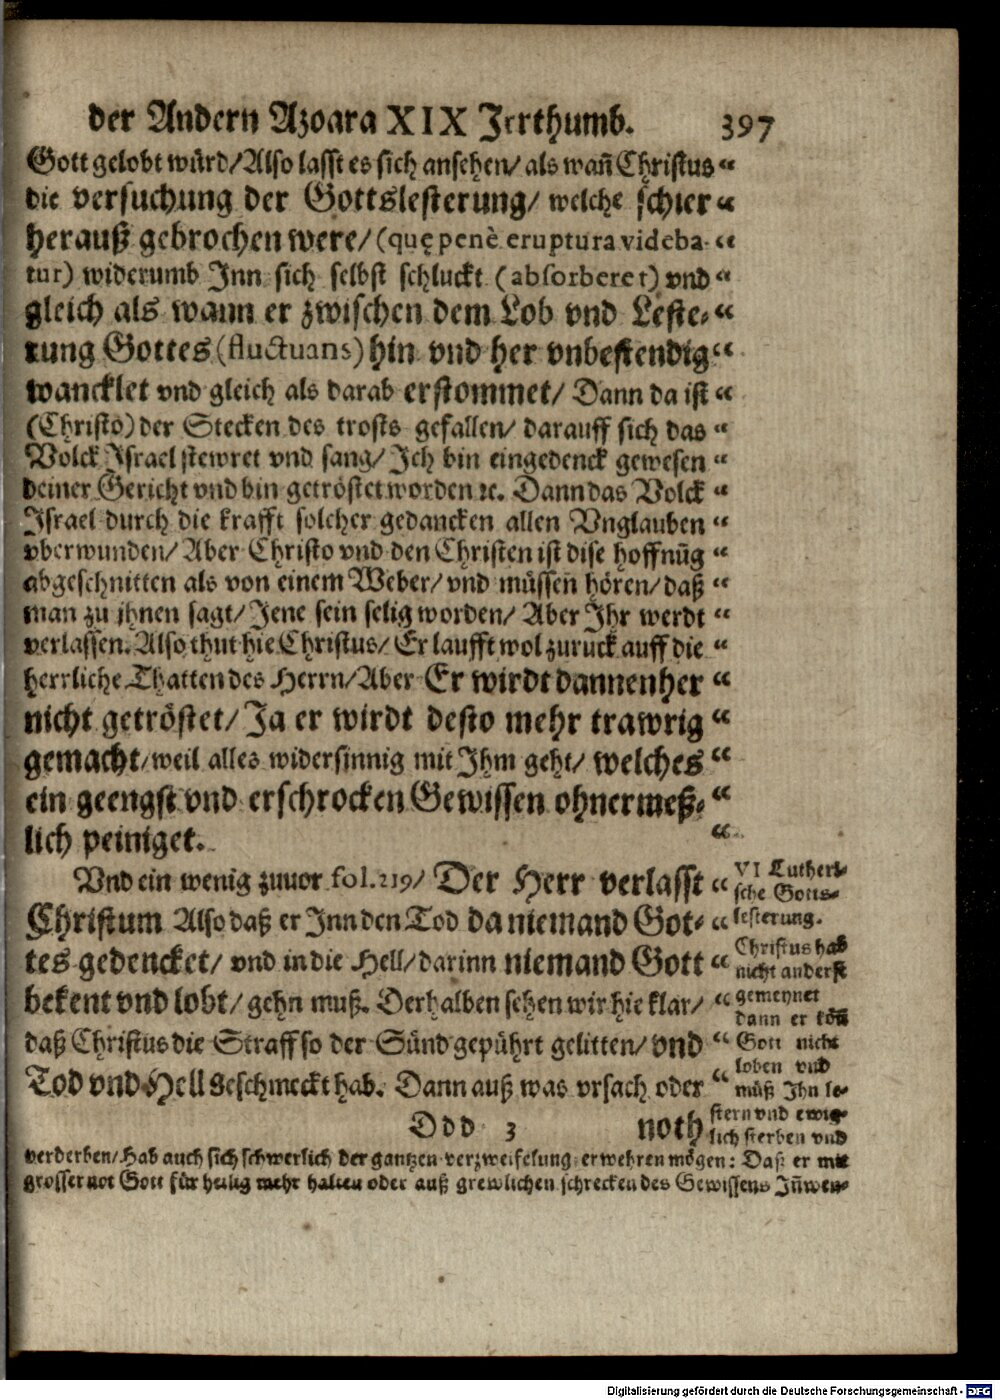 der Andern Azoara XIX Jrrthumb. 397
Gott gelobt wurd/ Also lasst es sich ansehen/ als wañ Christus “
die versuchung der Gottslesterung/ welche schier “
herauß gebrochen were/ (quę penè eruptura videba- “
tur) widerumb Jnn sich selbst schluckt (absorberet) vnd “
gleich als wann er zwischen dem Lob vnd Leste- “
rung Gottes (fluctuans) hin vnd her vnbestendig “
wancklet vnd gleich als darab erstommet/ Dann da ist “
(Christo) der Stecken des trosts gefallen/ darauff sich das “
Volck Jsrael stewret vnd sang/ Jch bin eingedenck gewesen “
deiner Gericht vnd bin getröstet worden ꝛc. Dann das Volck “
Jsrael durch die krafft solcher gedancken allen Vnglauben “
vberwunden/ Aber Christo vnd den Christen ist dise hoffnūg “
abgeschnitten als von einem Weber/ vnd müssen hören/ daß “
man zu jhnen sagt/ Jene sein selig worden/ Aber Jhr werdt “
verlassen. Also thut hie Christus/ Er laufft wol zuruck auff die “
herrliche Thatten des Herrn/ Aber Er wirdt dannenher “
nicht getröstet/ Ja er wirdt desto mehr trawrig “
gemacht/ weil alles widersinnig mit Jhm geht/ welches “
ein geengst vnd erschrocken Gewissen ohnermeß- “
lich peiniget. “
Vnd ein wenig zuuor fol. 219/ Der Herr verlasst “
Christum Also daß er Jnn den Tod da niemand Got- “
tes gedencket/ vnd in die Hell/ darinn niemand Gott “
bekent vnd lobt/ gehn muß. Derhalben sehen wir hie klar/ “
daß Christus die Straff so der Sünd gepührt gelitten/ vnd “
Tod vnd Hell geschmeckt hab. Dann auß was vrsach oder “
Ddd 3 noth
VI Lutheri-
sche Gotts-
lesterung.
Christus hab
nicht anderst
gemeynet
dann er köñ
Gott nicht
loben vnd
müß Jhn le-
stern vnd ewig-
lich sterben vnd
verderben/ Hab auch sich schwerlich der gantzen verzweifelung erwehren mögen: Daß er mit
grosser not Gott für heilig mehr halten oder auß grewlichen schrecken des Gewissens Jñwen-
Digitalisierung gefördert durch die Deutsche Forschungsgemeinschaft - DFG